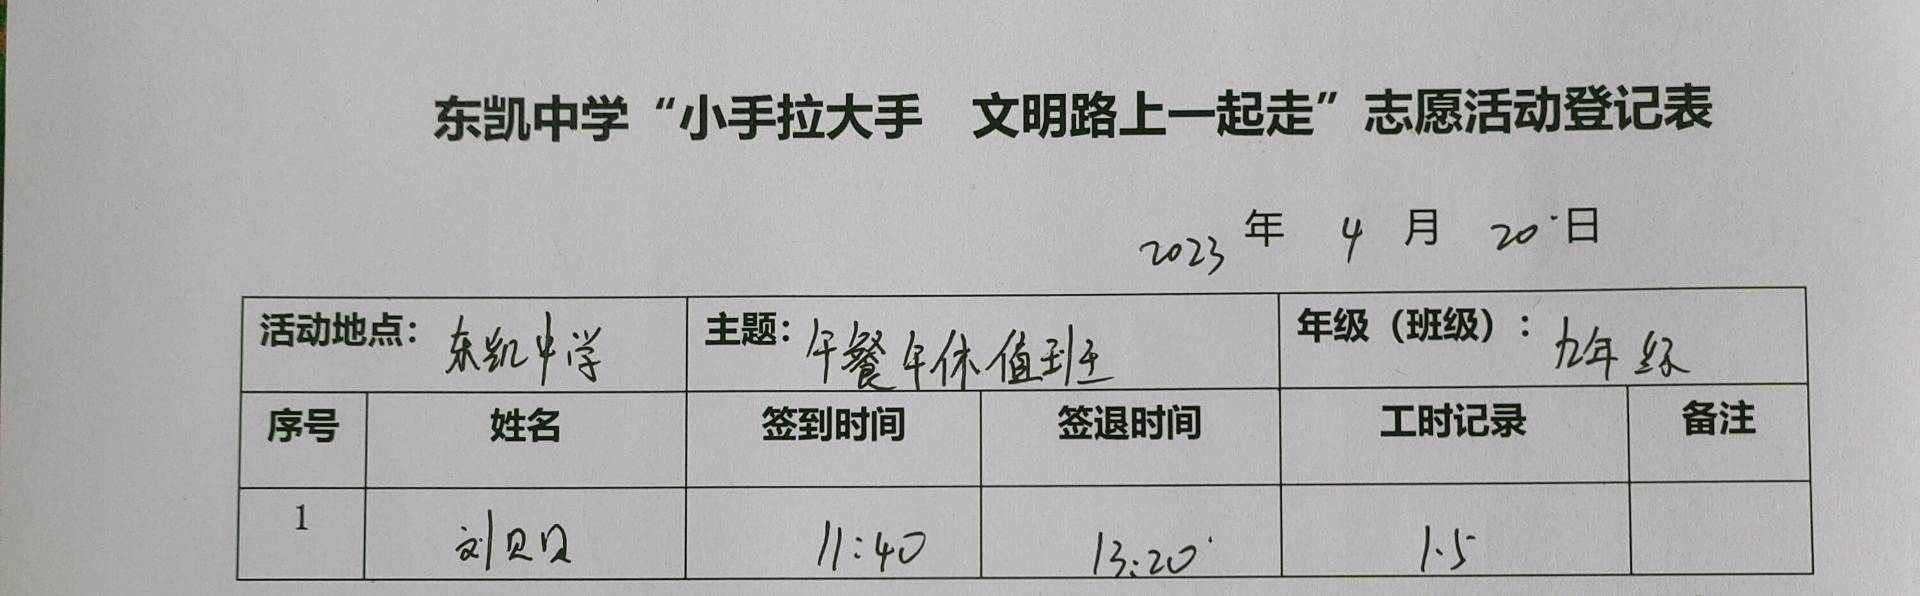 东凯中学“小手拉大手 文明路上一起走”志愿活动登记表
2023 年 4 月 20 日
活动地点：东凯中学 主题：午餐午休值班 年级（班级）：九年级
序号 姓名 签到时间 签退时间 工时记录 备注
1 刘贝贝 11:40 13:20 1.5